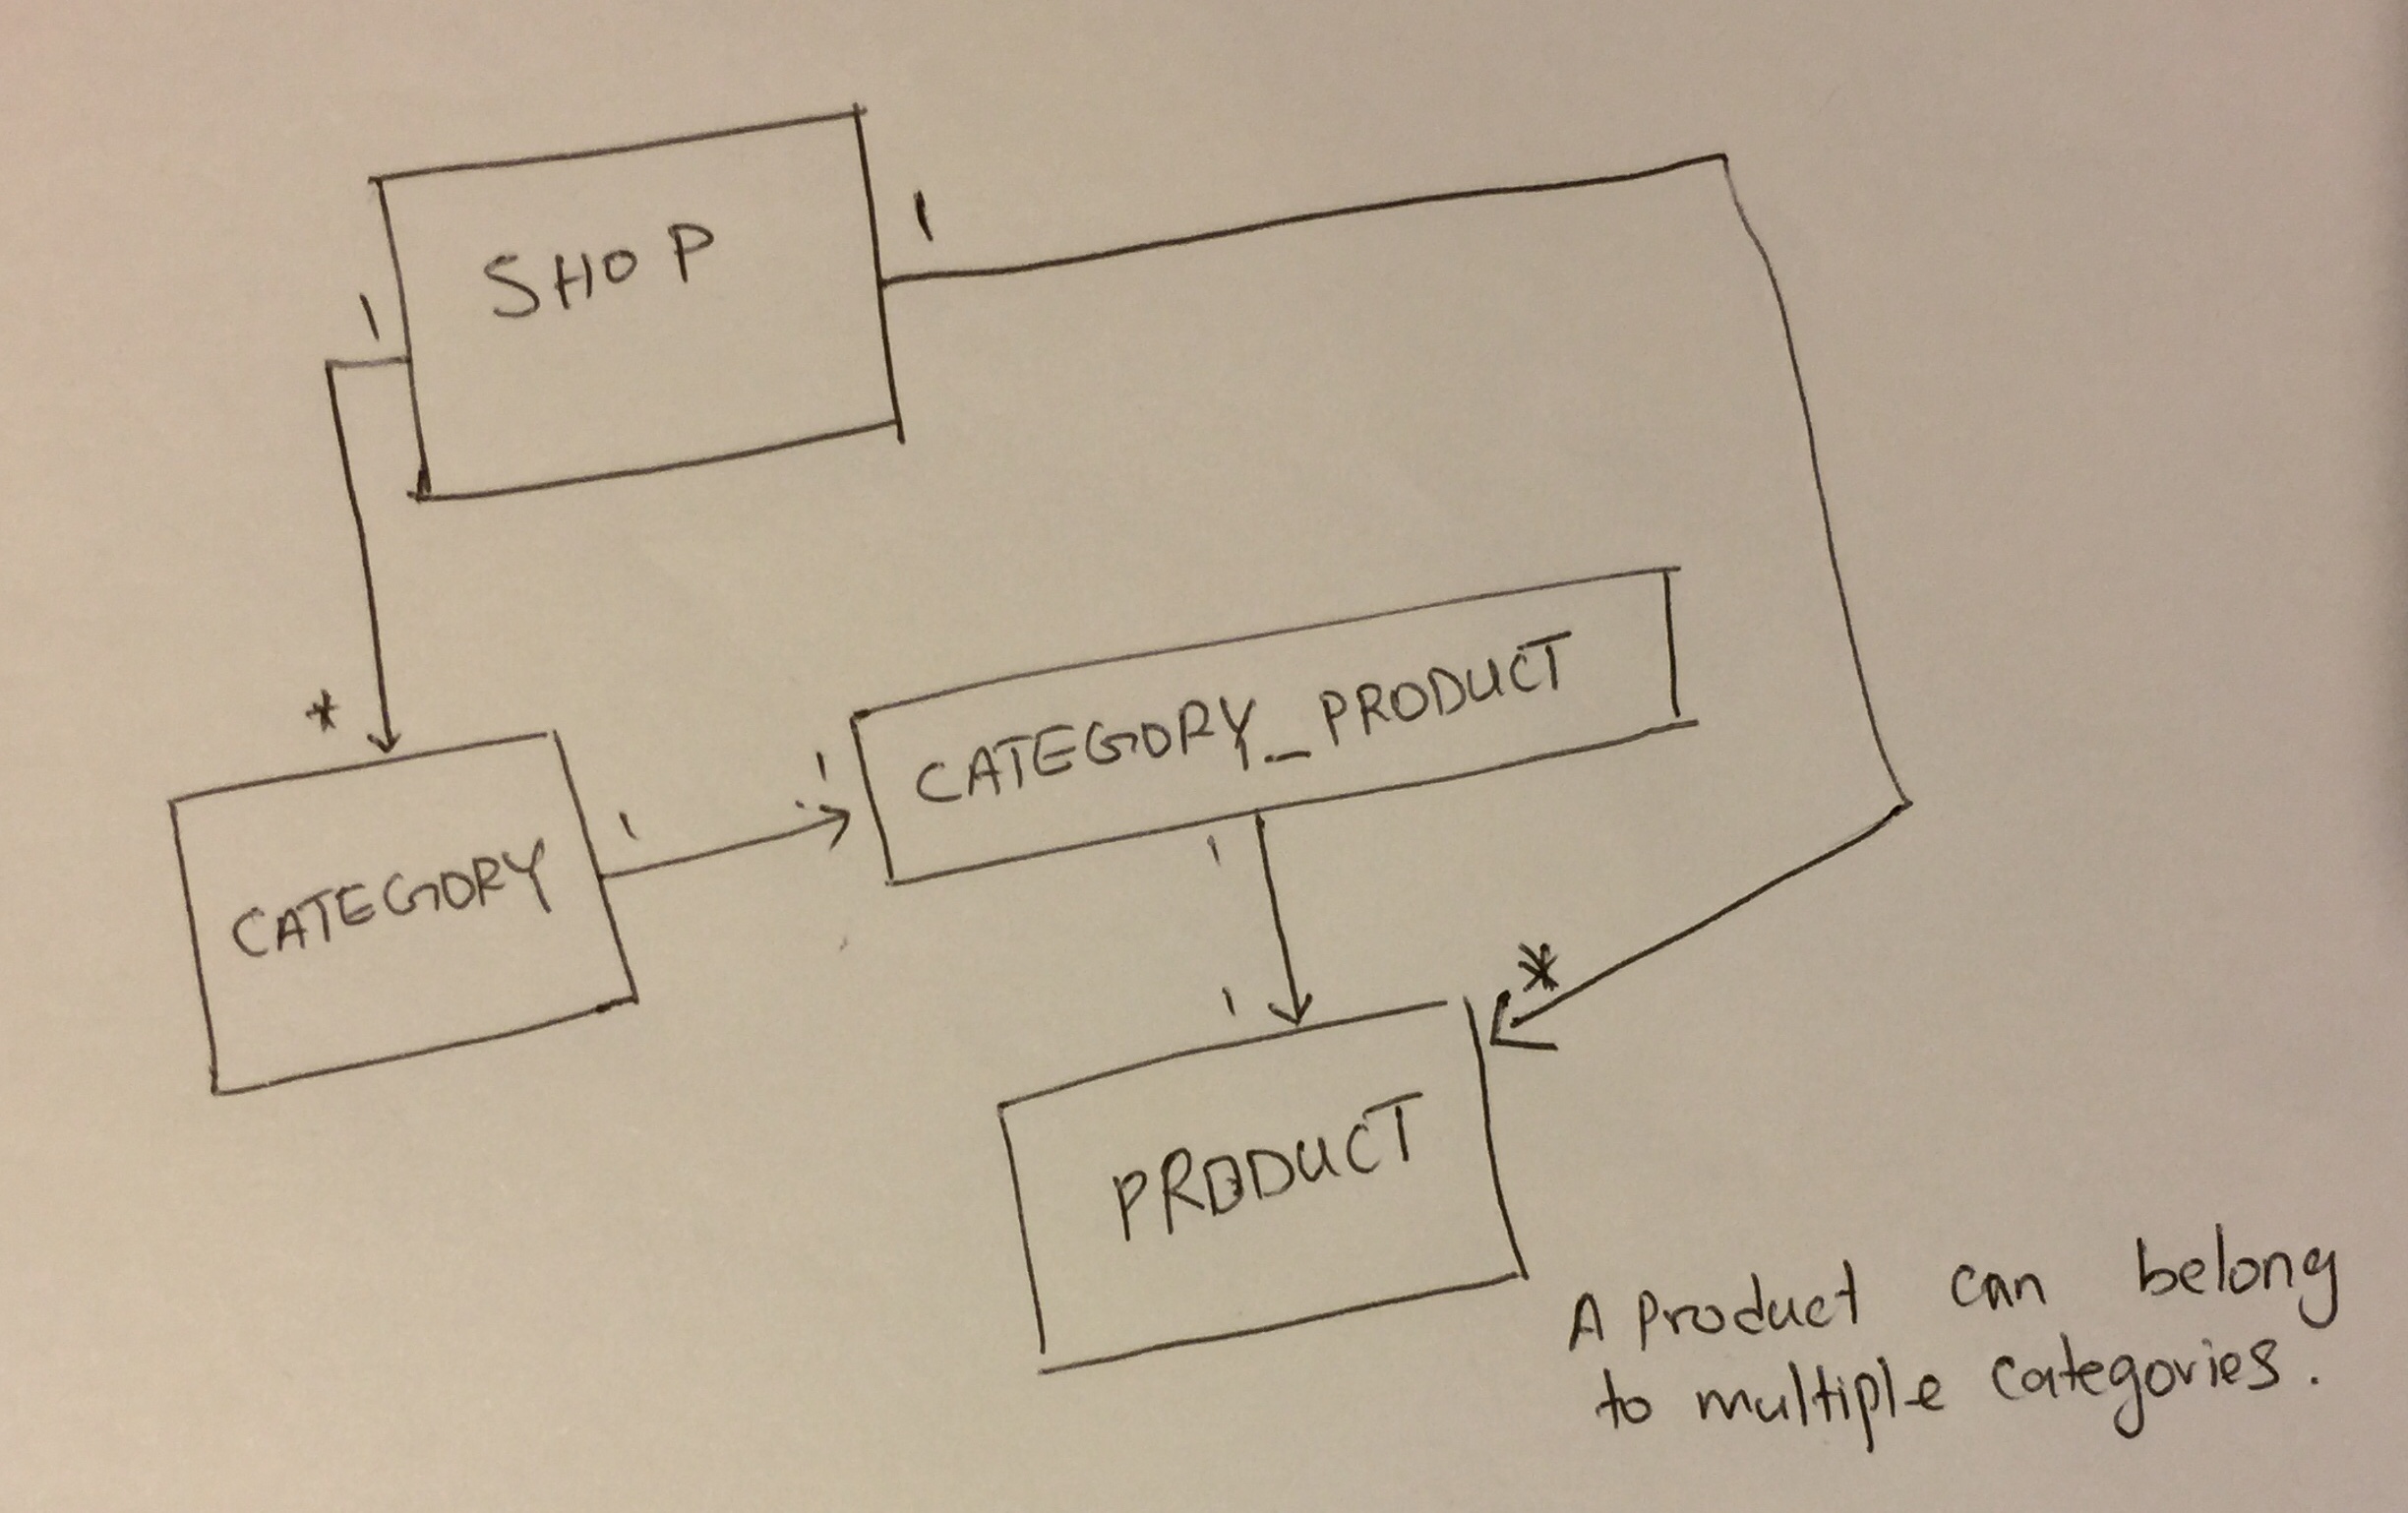 SHOP
1
1
*
CATEGORY_PRODUCT
1
1
CATEGORY
1
1
*
PRODUCT
A product can belong
to multiple categories.